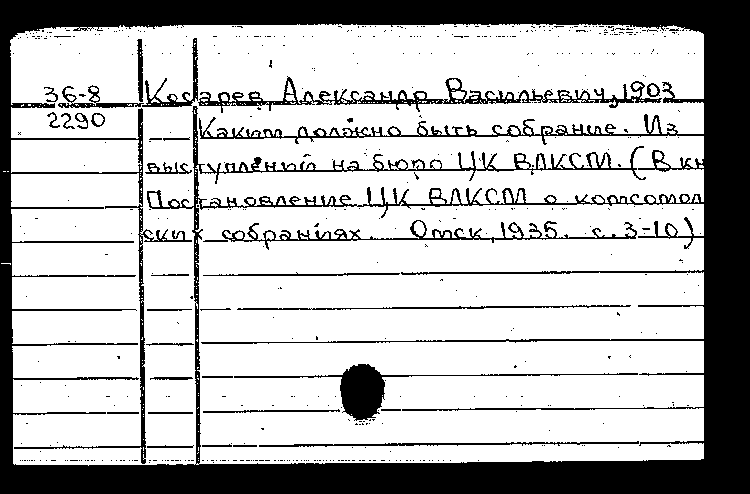 36-8 Косарев, Александр Васильевич, 1903
2290 Каким должно быть собрание. Из
выступлений на бюро ЦК ВЛКСМ. (В кн
Постановление ЦК ВЛКСМ о комсомол
ских собраниях. Омск, 1935. с. 3-10)